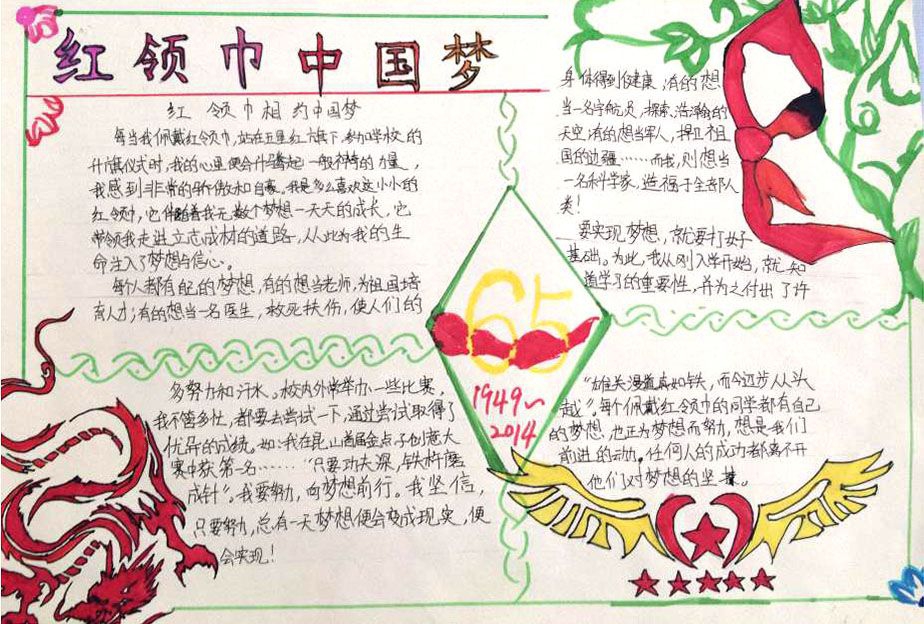 红领巾中国梦
红领巾相约中国梦
每当我佩戴红领巾,站在五星红旗下,参加学校的
升旗仪式时,我的心里便会升腾起一股神奇的力量,
我感到非常的骄傲和自豪。我是多么喜欢这小小的
红领巾,它伴随着我无数个梦想一天天的成长,它
带领我走进立志成材的道路,从此为我的生
命注入了梦想与信心。
每个人都有自己的梦想,有的想当老师,为祖国培
育人才;有的想当一名医生,救死扶伤,使人们的
身体得到健康;有的想
当一名宇航员,探索浩瀚的
天空;有的想当军人,捍卫祖
国的边疆……而我,则想当
一名科学家,造福于全部人
类!
要实现梦想,就要打好
基础。为此,我从刚入学开始,就知
道学习的重要性,并为之付出了许
65
1949~
2014
多努力和汗水。校内外常举办一些比赛,
我不管多忙,都要去尝试一下,通过尝试取得了
优异的成绩。如:我在昆山首届金点子创意大
赛中获第一名……“只要功夫深,铁杵磨
成针”。我要努力,向梦想前行。我坚信,
只要努力,总有一天梦想便会变成现实,便
会实现!
“雄关漫道真如铁,而今迈步从头
越”。每个佩戴红领巾的同学都有自己
的梦想,也正为梦想而努力,想是我们
前进的动力。任何人的成功都离不开
他们对梦想的坚